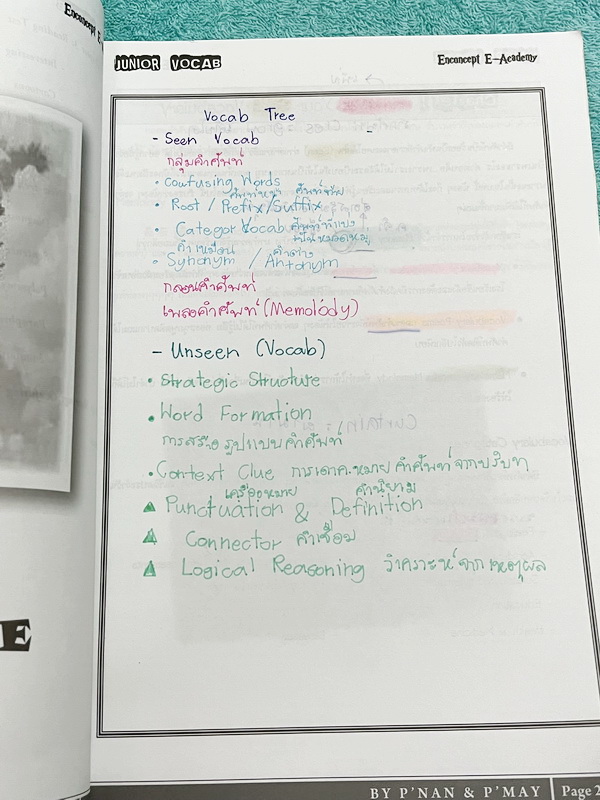 Enconcept E-A
JUNIOR VOCAB
Enconcept E-Academy
Vocab Tree
- Seen Vocab
กลุ่มคำศัพท์
• Confusing Words
ศัพท์หน้า ศัพท์ท้าย
• Root / Prefix / Suffix
• Categor Vocab ศัพท์ที่แบ่ง
เป็นหมวดหมู่
คำเหมือน คำต่าง
• Synonym / Antonym
กลอนคำศัพท์
เพลงคำศัพท์ (Memolody)
- Unseen (Vocab)
• Strategic Structure
• Word Formation
การสร้างรูปแบบคำศัพท์
• Context Clue การเดาความหมายคำศัพท์จากบริบท
เครื่องหมาย คำนิยาม
Punctuation & Definition
Connector คำเชื่อม
Logical Reasoning วิเคราะห์จากเหตุผล
E
BY P'NAN & P'MAY Page 2